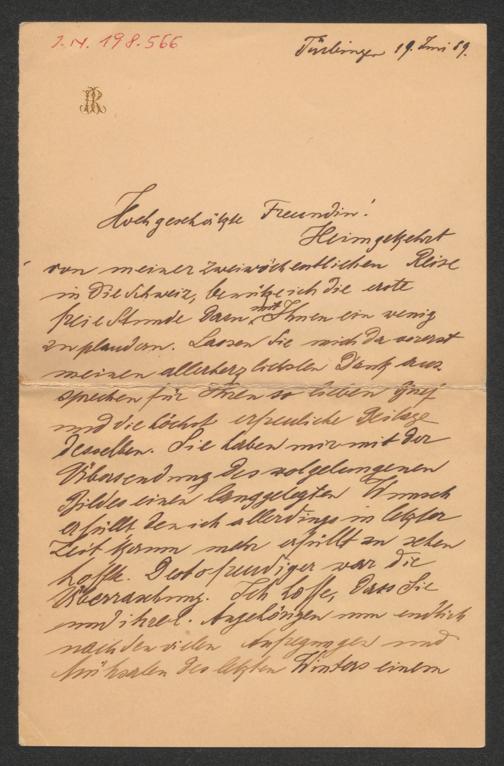 I.N. 198.566
Tübingen 19. Juni 89.
JR
Hochgeschätzte Freundin!
Heimgekehrt
von meiner zweiwöchentlichen Reise
in die Schweiz, benütze ich die erste
freie Stunde dazu, mit Ihnen ein wenig
zu plaudern. Lassen Sie mich da vorerst
meinen allerherzlichsten Dank aus
sprechen für Ihren so lieben Brief
und die höchst erfreuliche Beilage
desselben. Sie haben mir mit der
Übersendung des wolgelungenen
Bildes einen langgelegten Wunsch
erfüllt den ich allerdings in letzter
Zeit kaum mehr erfüllt zu sehen
hoffte. Desto freudiger war die
Überraschung. Ich hoffe, dass Sie
und ihre l. Angehörigen nun endlich
nach den vielen Aufregungen und
Mühsalen des letzten Winters einem